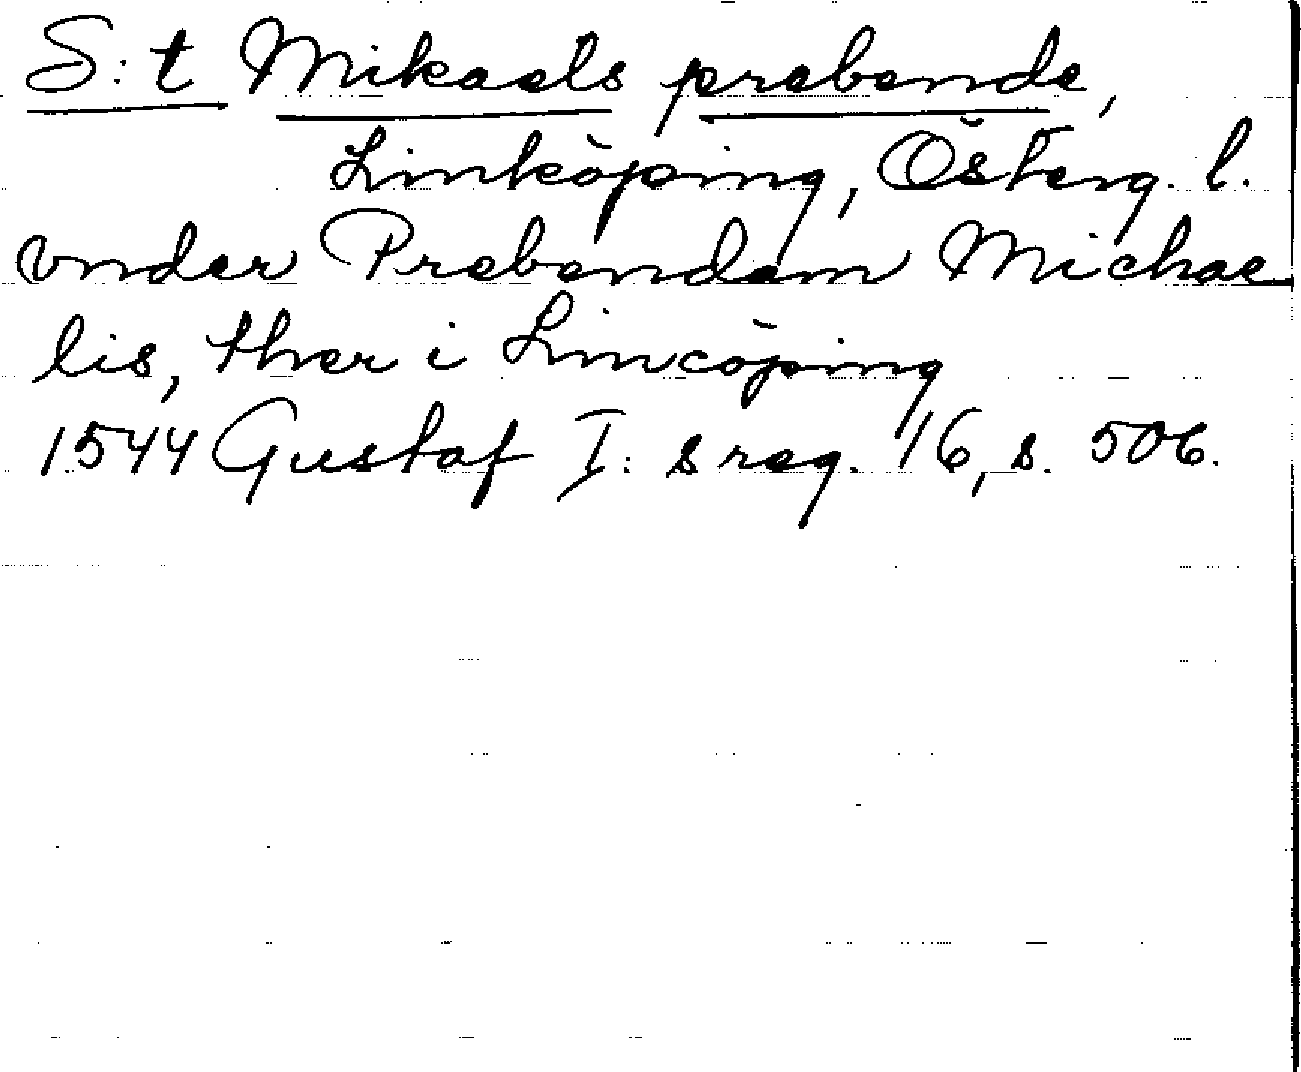 S:t Mikaels prebende,
Linköping, Österg. l.
vnder Prebendam Michae
lis, ther i Lincöping
1544 Gustaf I: s reg. 16, s. 506.